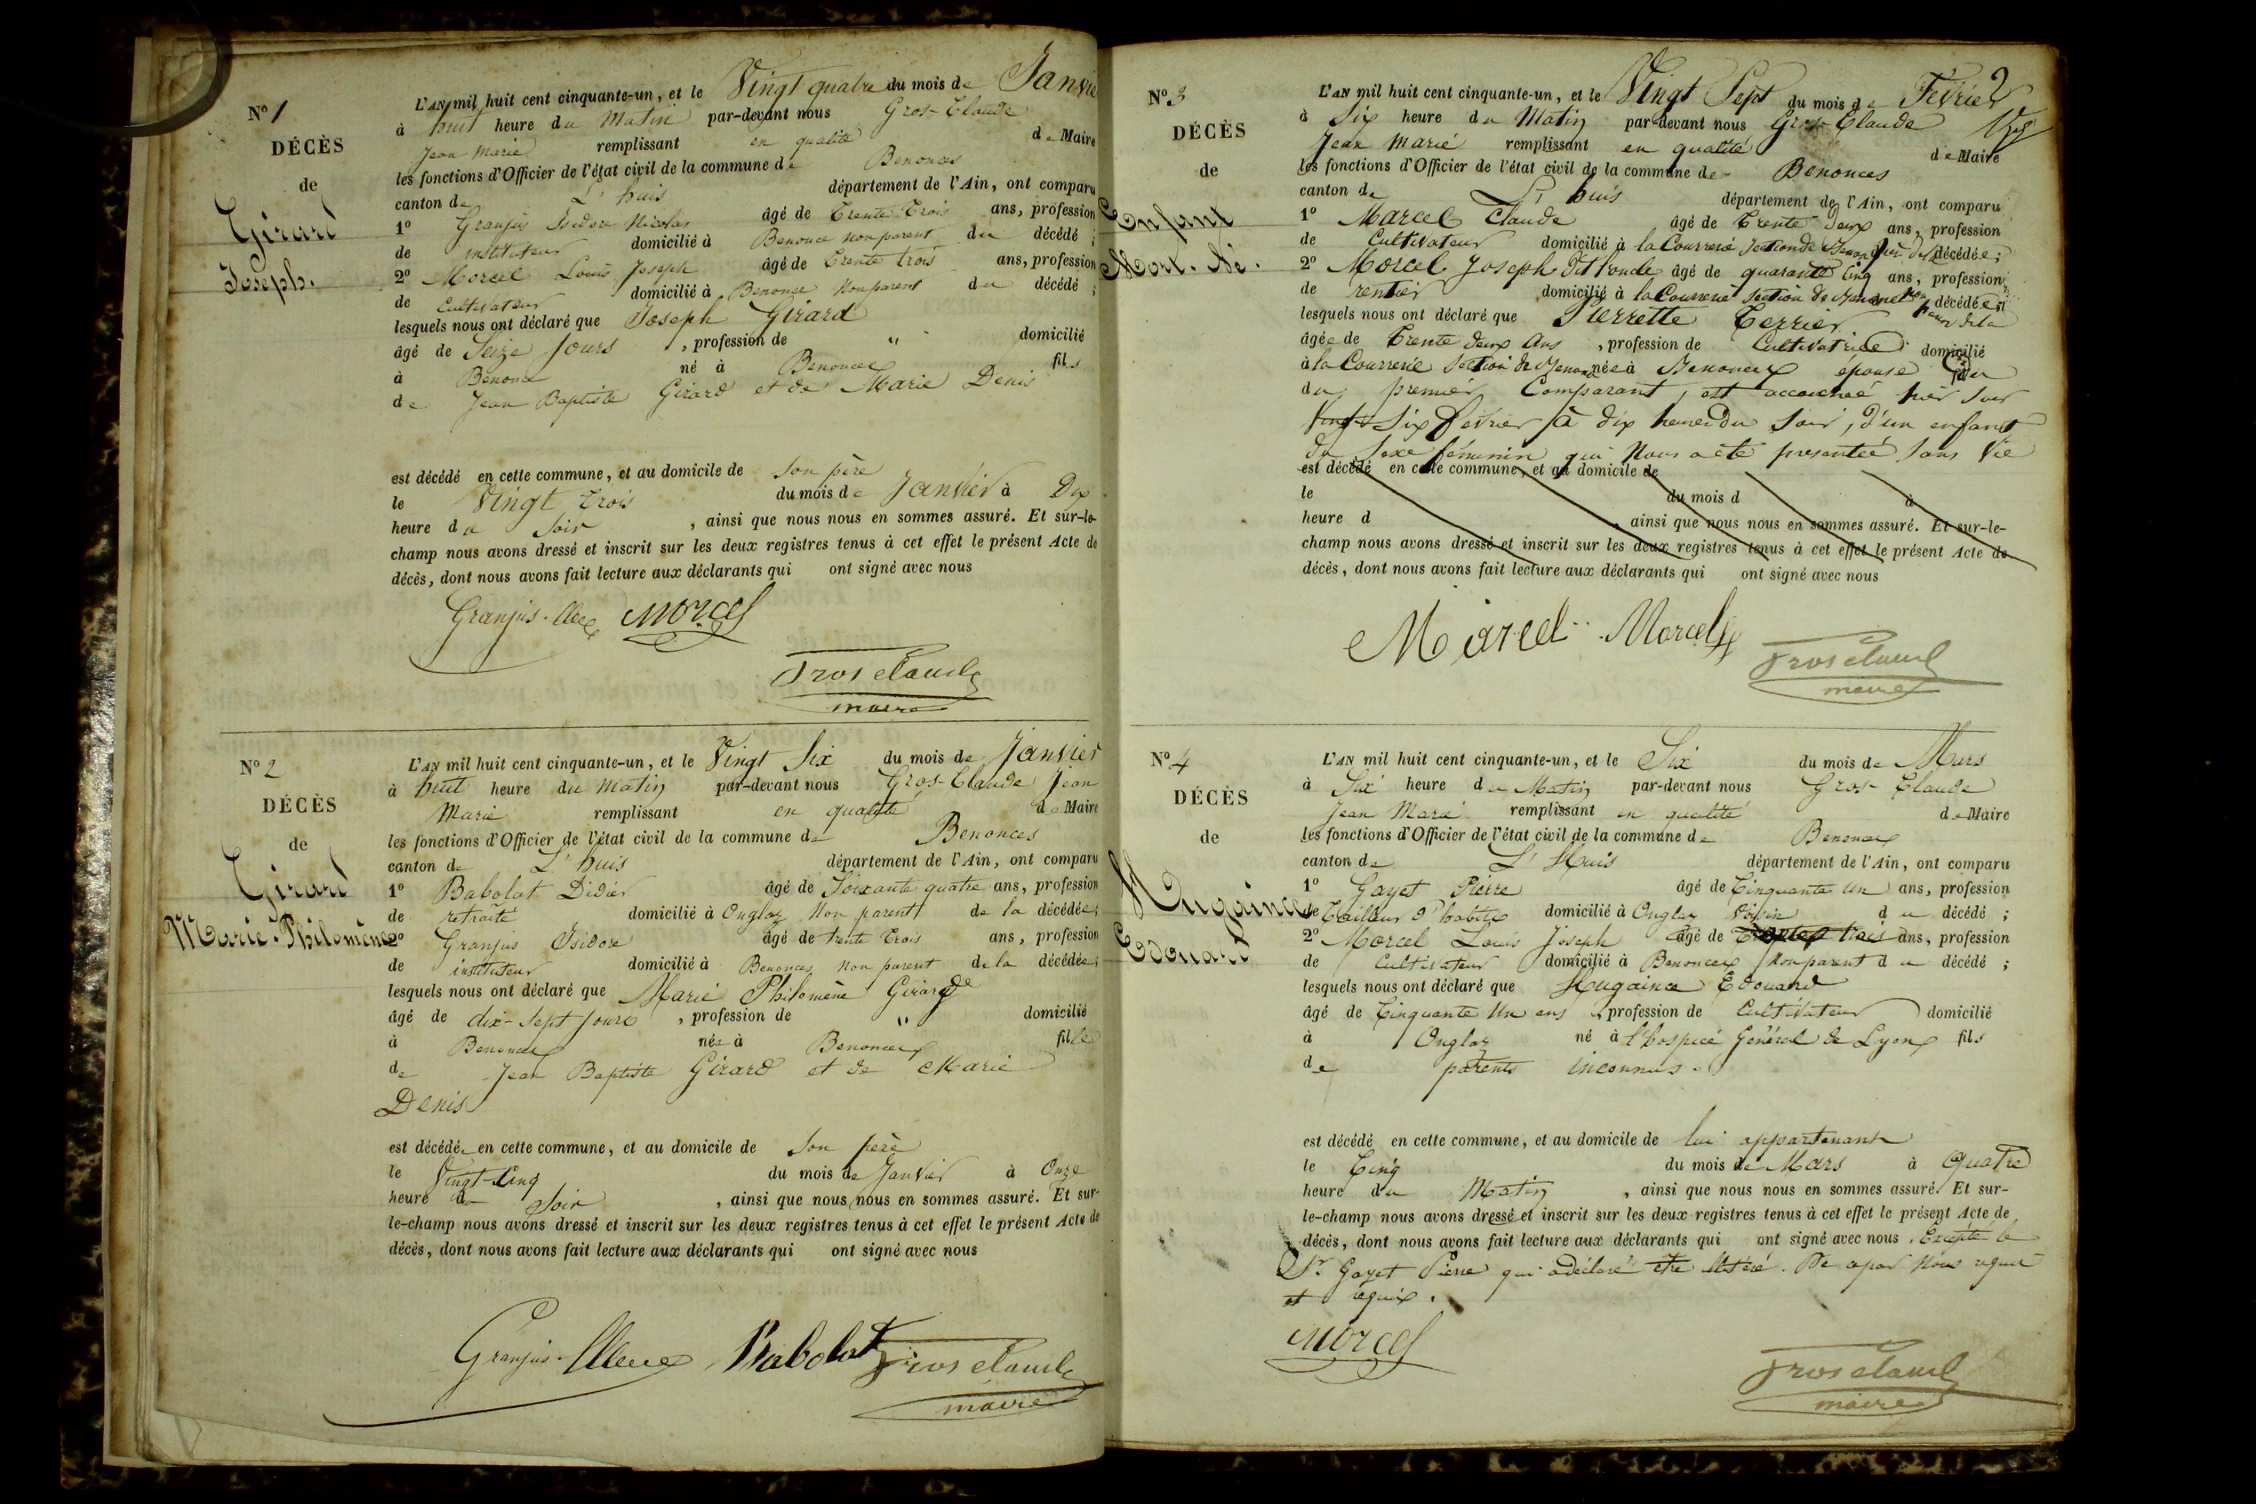 N° 1
DÉCÈS
de
Girard
Joseph.
L'AN mil huit cent cinquante-un, et le Vingt quatre du mois de Janvie
à huit heure du Matin par-devant nous Gros-Claude
Jean Marie remplissant en qualité de Maire
les fonctions d'Officier de l'état civil de la commune de Benonces
canton de L'huis département de l'Ain, ont comparu
1° Granjus Isidore Nicolas âgé de Trente Trois ans, profession
de instituteur domicilié à Benonce non parent du décédé ;
2° Morcel Louis Joseph âgé de trente trois ans, profession
de Cultivateur domicilié à Benonce Non parent du décédé ;
lesquels nous ont déclaré que Joseph Girard
âgé de Seize Jours , profession de " domicilié
à Benonce né à Benonces fils
de Jean Baptiste Girard et de Marie Denis
est décédé en cette commune, et au domicile de son père
le Vingt trois du mois de Janvier à Dix
heure du Soir , ainsi que nous nous en sommes assuré. Et sur-le-
champ nous avons dressé et inscrit sur les deux registres tenus à cet effet le présent Acte de
décès, dont nous avons fait lecture aux déclarants qui ont signé avec nous
Granjus Morcel
Gros Claude
maire
N° 2
DÉCÈS
de
Girard
Marie-Philomène
L'AN mil huit cent cinquante-un, et le Vingt Six du mois de Janvier
à huit heure du Matin par-devant nous Gros-Claude Jean
Marie remplissant en qualité de Maire
les fonctions d'Officier de l'état civil de la commune de Benonces
canton de L'huis département de l'Ain, ont comparu
1° Babolat Didier âgé de Soixante quatre ans, profession
de retraité domicilié à Onglaz Non parent de la décédée ;
2° Granjus Isidore âgé de trente trois ans, profession
de instituteur domicilié à Benonces Non parent de la décédée ;
lesquels nous ont déclaré que Marie Philomène Girard
âgé de dix-sept jours , profession de " domicilié
à Benonces née à Benonces fille
de Jean Baptiste Girard et de Marie
Denis
est décédée en cette commune, et au domicile de Son père
le Vingt-Cinq du mois de Janvier à Onze
heure du Soir , ainsi que nous nous en sommes assuré. Et sur-
le-champ nous avons dressé et inscrit sur les deux registres tenus à cet effet le présent Acte de
décès, dont nous avons fait lecture aux déclarants qui ont signé avec nous
Granjus Babolat Gros Claude
maire
N° 3
DÉCÈS
de
Enfant
Mort-Né.
L'AN mil huit cent cinquante-un, et le Vingt Sept du mois de Février
2
à Six heure du Matin par-devant nous Gros-Claude
Jean Marie remplissant en qualité de Maire
les fonctions d'Officier de l'état civil de la commune de Benonces
canton de L'huis département de l'Ain, ont comparu
1° Marcel Claude âgé de Trente deux ans, profession
de Cultivateur domicilié à la Courrerie Section de décédée ;
2° Morcel Joseph dit âgé de quarante Cinq ans, profession
de rentier domicilié à la Courrerie Section de non parent de la décédée ;
lesquels nous ont déclaré que Pierrette Terrier
âgée de Trente deux Ans , profession de Cultivatrice domicilié
à la Courrerie Section de née à Benonces épouse
du premier Comparant, est accouchée hier Soir
Vingt Six février à dix heures du Soir, d'un enfant
du Sexe féminin qui Nous a été presentée Sans Vie
est décédé en cette commune, et au domicile de
le du mois d à
heure d , ainsi que nous nous en sommes assuré. Et sur-le-
champ nous avons dressé et inscrit sur les deux registres tenus à cet effet le présent Acte de
décès, dont nous avons fait lecture aux déclarants qui ont signé avec nous
Marcel Morcel
Gros Claude
maire
N° 4
DÉCÈS
de
Hugaince
Edouard
L'AN mil huit cent cinquante-un, et le Six du mois de Mars
à Six heure du Matin par-devant nous Gros-Claude
Jean Marie remplissant en qualité de Maire
les fonctions d'Officier de l'état civil de la commune de Benonces
canton de L'Huis département de l'Ain, ont comparu
1° Gayet Pierre âgé de Cinquante Un ans, profession
de Tailleur d'habits domicilié à Onglaz Voisin du décédé ;
2° Morcel Louis Joseph âgé de Trente trois ans, profession
de Cultivateur domicilié à Benonces Non parent du décédé ;
lesquels nous ont déclaré que Hugaince Edouard
âgé de Cinquante Un ans , profession de Cultivateur domicilié
à Onglaz né à l'hospice Général de Lyon fils
de parents inconnus.
est décédé en cette commune, et au domicile de lui appartenant
le Cinq du mois de Mars à quatre
heure du Matin , ainsi que nous nous en sommes assuré. Et sur-
le-champ nous avons dressé et inscrit sur les deux registres tenus à cet effet le présent Acte de
décès, dont nous avons fait lecture aux déclarants qui ont signé avec nous. Excepté le
Sr. Gayet Pierre qui a déclaré être illetéré. De ce par Nous requit
et requis.
Morcel
Gros Claude
maire